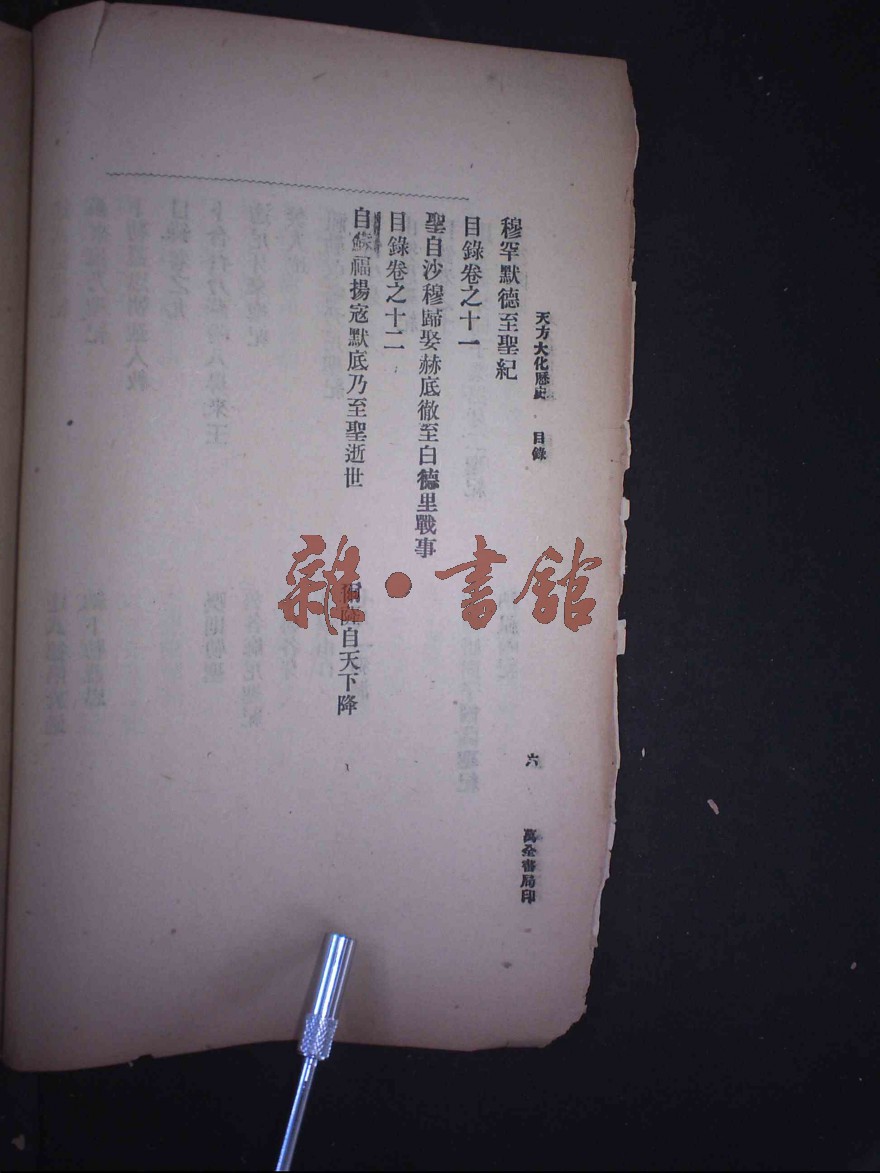 天方大化歷史 目錄 六 萬全書局印
穆罕默德至聖紀
目錄卷之十一
聖自沙穆歸娶赫底徹至白德里戰事
目錄卷之十二
自蘇福揚寇默底乃至聖逝世 自天下降
雜·書館